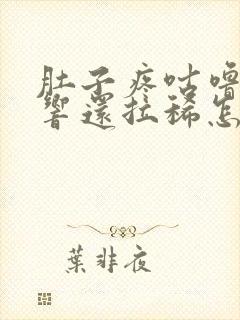 肚子疼咕嚕
響還拉稀怎
葉非夜